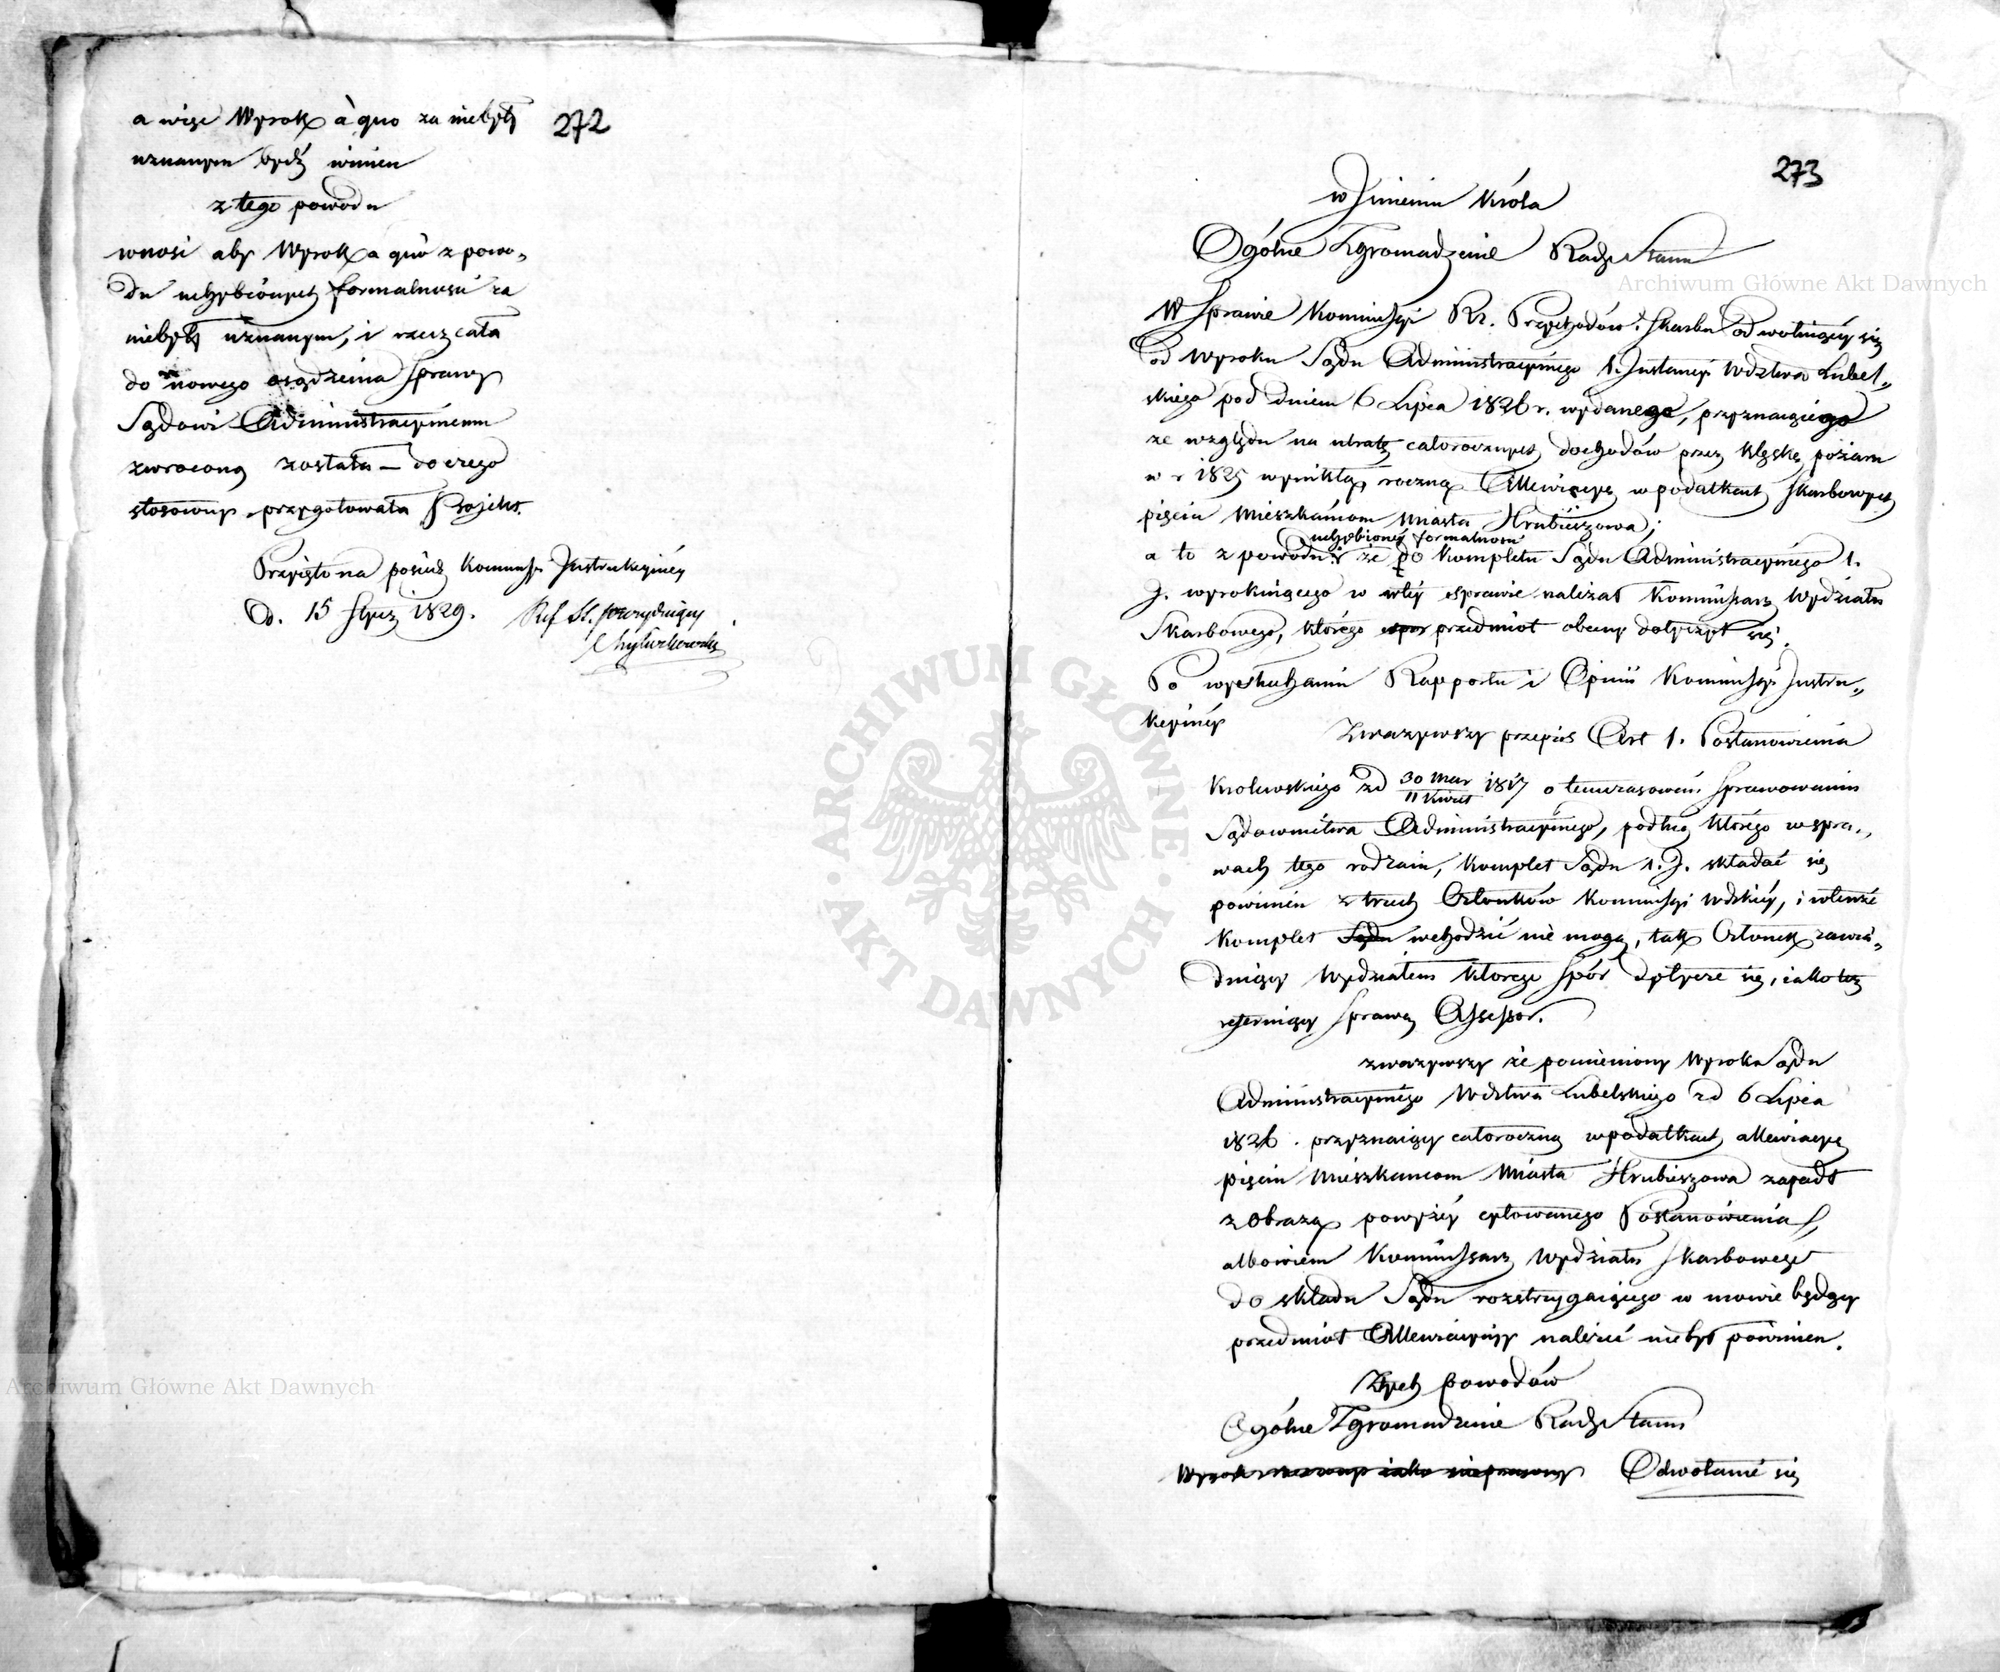 272
a więc Wyrok à quo za niebyły
uznanym bydź winien
z tego powodu
wnosi aby Wyrok a quo z powo„
du uchybionych formalności za
niebyły uznanym, i rzecz cała
do nowego osądzenia sprawy
Sądowi Administracyinemu
zwroconą została – do czego
stosowny przygotowała Projekt.
Przyięto na posiedz Kommissyi Instrukcyiney
D. 15 Stycz 1829. Ref St.
273
w Imieniu Króla
Ogólne Zgromadzenie Rady Stanu
W Sprawie Kommissyi Rz. Przychodów i Skarbu odwołuiącey się
od wyroku Sądu Administracyinego 1. Instancyi Wdztwa Lubel„
skiego pod dniem 6 Lipca 1826 r. wydanego, przyznaiącego
ze względu na utratę całorocznych dochodów przez klęskę pożaru
w r 1825 wynikłą, roczną Allewiacyę w podatkach skarbowych
pięciu Mieszkańcom Miasta Hrubieszowa;
uchybioney formalności
a to z powodu że do kompletu Sądu Administracyinego 1.
J. wyrokuiącego w tey sprawie należał Kommissarz Wydziału
Skarbowego, którego spor przedmiot obecny dotyczył się.
Po wysłuchaniu Rapportu i Opinii Kommissyi Instru„
kcyiney
Zważywszy przepis Art 1. Postanowienia
Krolewskiego zd 30 Mar / 11 Kwiet 1817 o temczasowem sprawowaniu
Sądownictwa Administracyinego, podług którego w spra„
wach tego rodzaiu, komplet Sądu 1. J. składać się
powinien z trzech Członków Kommissyi Wdzkiey, i w tenże
komplet Sądu wchodzić nie mogą, tak Członek zawia„
duiący Wydziałem którego spór dotycze się, iako też
referuiący sprawę Assessor.
zważywszy że pomieniony Wyrok Sądu
Administracyinego Wdztwa Lubelskiego zd 6 Lipca
1826. przyznaiący całoroczną w podatkach allewiacyę
pięciu Mieszkancom Miasta Hrubieszowa zapadł
z obrazą powyżey cytowanego Postanowienia,
albowiem Kommissarz Wydziału Skarbowego
do składu Sądu rozstrzygaiącego w mowie będący
przedmiot Allewiacyiny należeć niebył powinien.
Z tych powodów
Ogólne Zgromadzenie Rady Stanu
Wyrok iako Odwołanie się
Archiwum Główne Akt Dawnych
Archiwum Główne Akt Dawnych
ARCHIWUM GŁÓWNE · AKT DAWNYCH ·